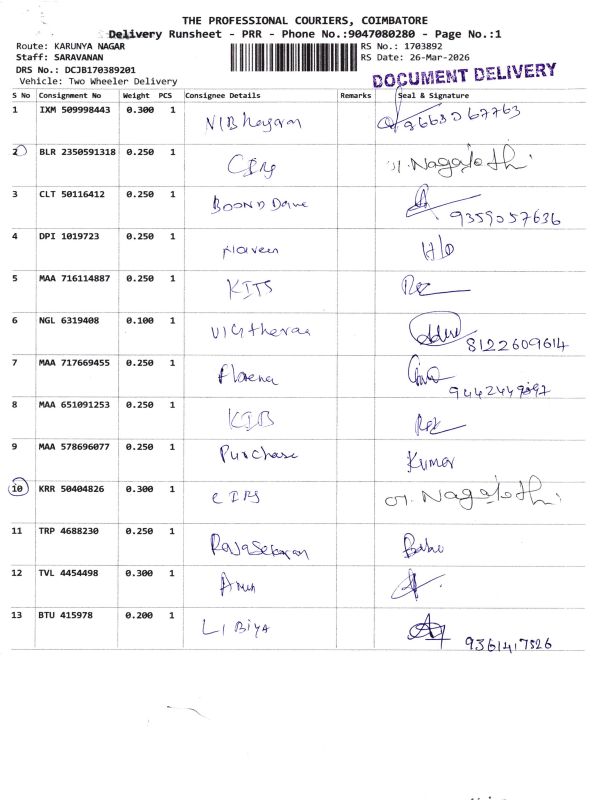 THE PROFESSIONAL COURIERS, COIMBATORE
Delivery Runsheet - PRR - Phone No.:9047080280 - Page No.:1
Route: KARUNYA NAGAR
RS No.: 1703892
Staff: SARAVANAN
RS Date: 26-Mar-2026
DRS No.: DCJB170389201
Vehicle: Two Wheeler Delivery
DOCUMENT DELIVERY
S No Consignment No Weight PCS Consignee Details Remarks Seal & Signature
1 IXM 509998443 0.300 1
2 BLR 2350591318 0.250 1 M. Nagajothi
3 CLT 50116412 0.250 1 9359057636
4 DPI 1019723 0.250 1 Naveen
5 MAA 716114887 0.250 1 KITS
6 NGL 6319408 0.100 1 8122609614
7 MAA 717669455 0.250 1
8 MAA 651091253 0.250 1
9 MAA 578696077 0.250 1 Purchase Kumar
10 KRR 50404826 0.300 1 M. Nagajothi
11 TRP 4688230 0.250 1 Rajasekaran Babu
12 TVL 4454498 0.300 1 Arun
13 BTU 415978 0.200 1 LIBiYA 9361417526